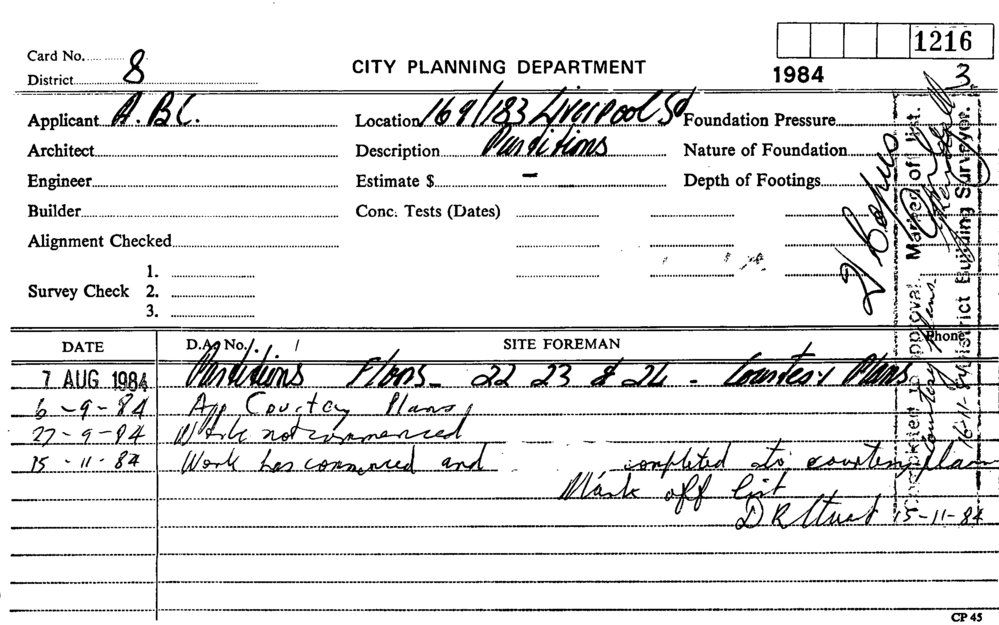 1216
Card No.
District 8
CITY PLANNING DEPARTMENT
1984
3
Applicant A.B.C.
Location 169/183 Liverpool St
Foundation Pressure
Architect
Description Partitions
Nature of Foundation
Engineer
Estimate $ -
Depth of Footings
Builder
Conc. Tests (Dates)
Alignment Checked
Survey Check
1.
2.
3.
2 Copies
Completed to approval. Marked of list.
Courtesy Plans
16-11-84 District Building Surveyor.
DATE
D.A. No.
SITE FOREMAN
Phone
7 AUG 1984 Partitions Floors - 22 23 & 24 - Courtesy Plans
6-9-84 App Courtesy Plans
27-9-84 Work not commenced
15-11-84 Work has commenced and completed to courtesy plans
Mark off list
15-11-84
CP 45